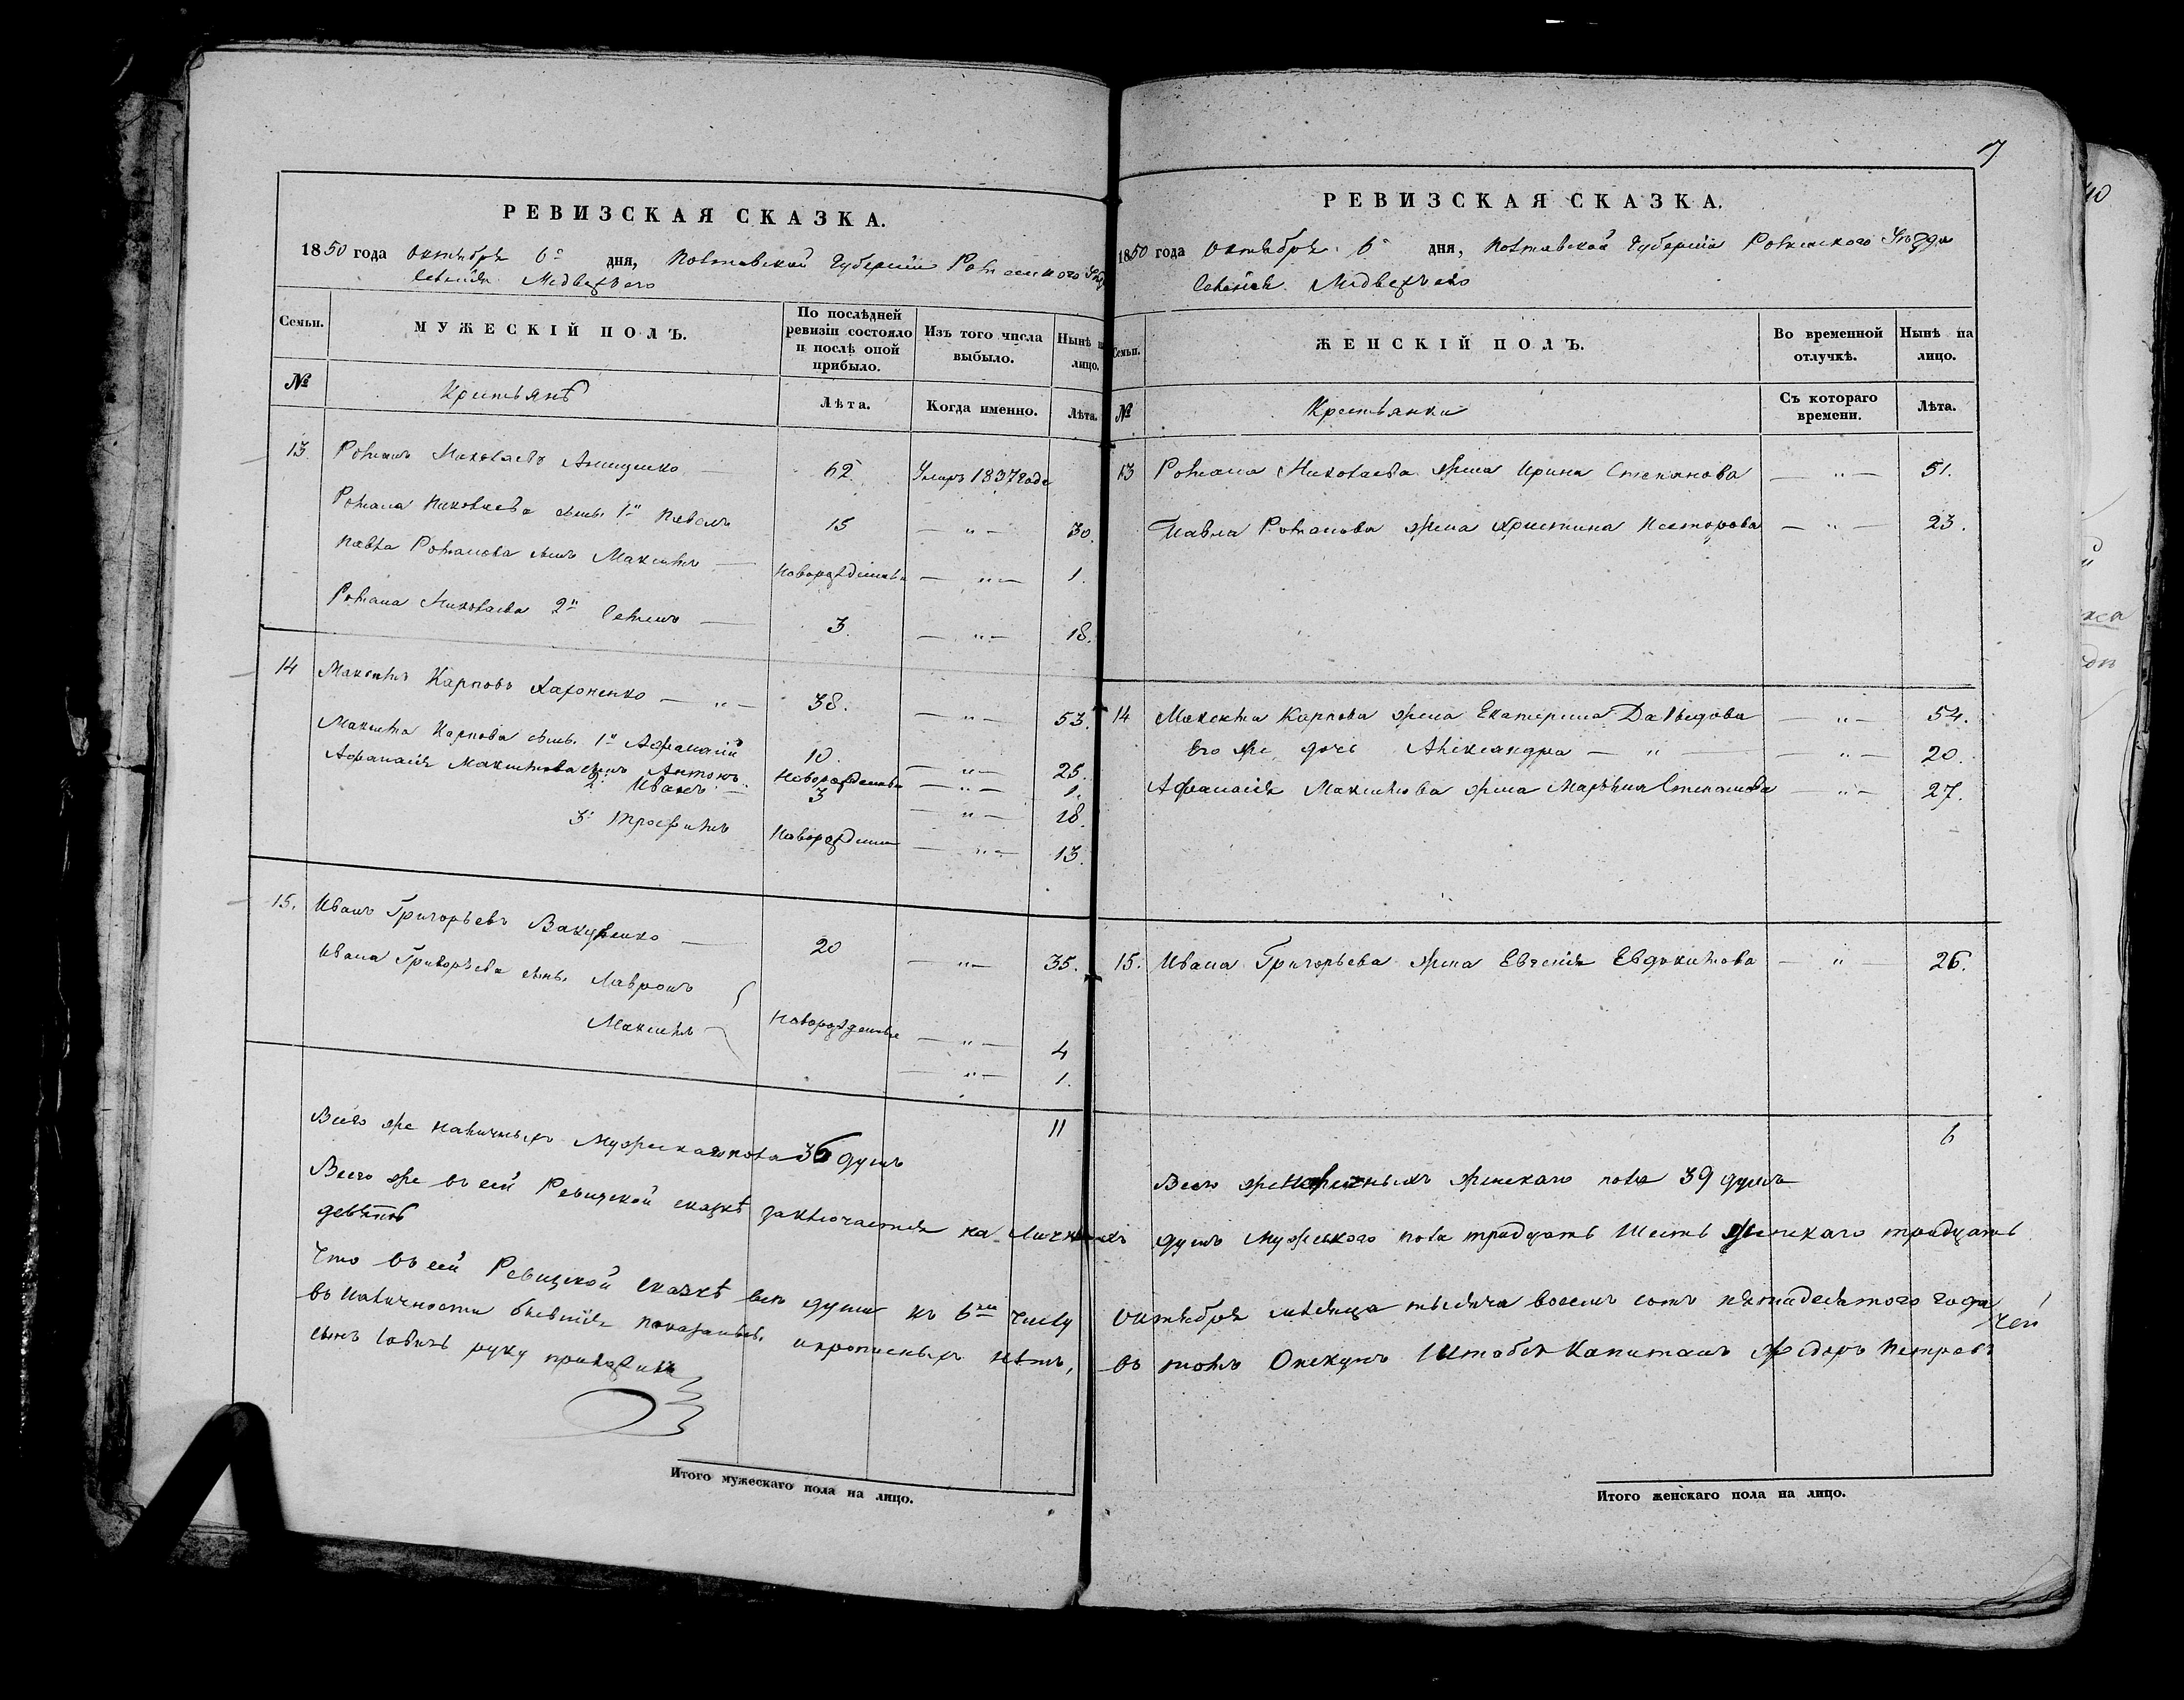 РЕВИЗСКАЯ СКАЗКА.
1850 года Октября 6го дня, Полтавской Губернии Роменского
Селенія Медвежьего
Семьи.
МУЖЕСКІЙ ПОЛЪ.
По послѣдней ревизіи состояло и послѣ оной прибыло.
Изъ того числа выбыло.
Нынѣ на лицо.
№
Крестьянѣ
Лѣта.
Когда именно.
Лѣта.
13. Романъ Николаевъ — 62 Умеръ 1837 года
Романа Николаева сынъ 1й Павелъ 15 — „ — 30.
Павла Романова сынъ Максимъ — Новорожденный — „ — 1.
Романа Николаева 2й Семенъ — 3. — „ — 18.
14 Максимъ Карповъ Хахоненко — „ — 38. — „ — 53.
Максима Карпова сынъ 1й Афанасій 10. — „ — 25.
Афанасія Максимова сынъ Антонъ Новорожденный — „ — 1.
2й Иванъ — 3 — „ — 18.
3й Трофимъ Новорожденный — „ — 13.
15. Иванъ Григорьевъ Вакуленко — 20 — „ — 35.
Ивана Григорьева сынъ Лавронъ
Максимъ Новорожденные — „ — 4
— „ — 1.
11
Всего же наличныхъ Мужескаго пола 36 душъ
Всего же въ сей Ревизской сказкѣ заключается наличныхъ
девять
Что въ сей Ревизской сказкѣ всѣ души къ 6му числу
въ наличности бывшія показаны и прописныхъ нѣтъ,
сынъ руку приложилъ
Итого мужескаго пола на лицо.
7
РЕВИЗСКАЯ СКАЗКА.
1850 года Октября 6го дня, Полтавской Губерніи Роменского Уѣзда
Селенія Медвежьего
Семьи.
ЖЕНСКІЙ ПОЛЪ.
Во временной отлучкѣ.
Нынѣ на лицо.
№
Крестьянки
Съ котораго времени.
Лѣта.
13 Романа Николаева жена Ирина Степанова — „ — 51.
Павла Романова жена Христина Несторова — „ — 23.
14 Максима Карпова жена Екатерина Давыдова — „ — 54.
Его же дочь Александра — „ — — „ — 20.
Афанасія Максимова жена Марѣна Степанова — „ — 27.
15. Ивана Григорьева жена Евгенія Евдокимова — „ — 26.
6
Всего же наличныхъ женскаго пола 39 душъ
душъ мужескаго пола тридцать шесть женскаго тридцать
Октября мѣсяца тысяча восемь сотъ пятидесятого года
въ томъ Опекунъ Штабсъ Капитанъ Федоръ Петровъ
Итого женскаго пола на лицо.